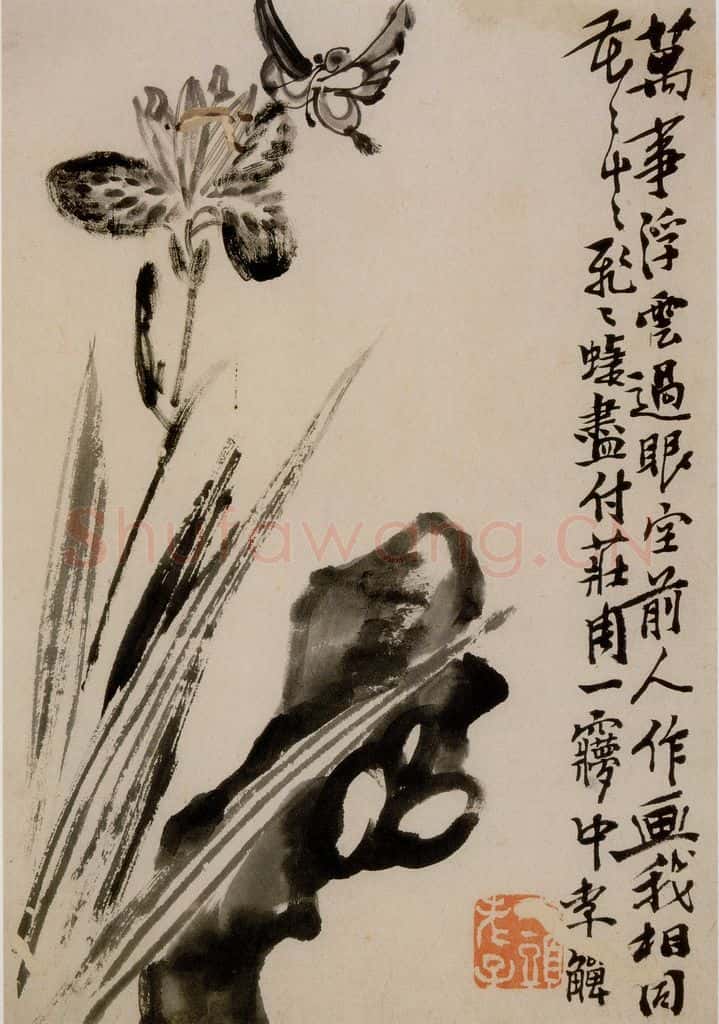 萬事浮雲過眼空前人作画我相同
花〻艸〻飛〻蝶盡付莊周一夢中李觶
頭
老子
Shufawang.CN